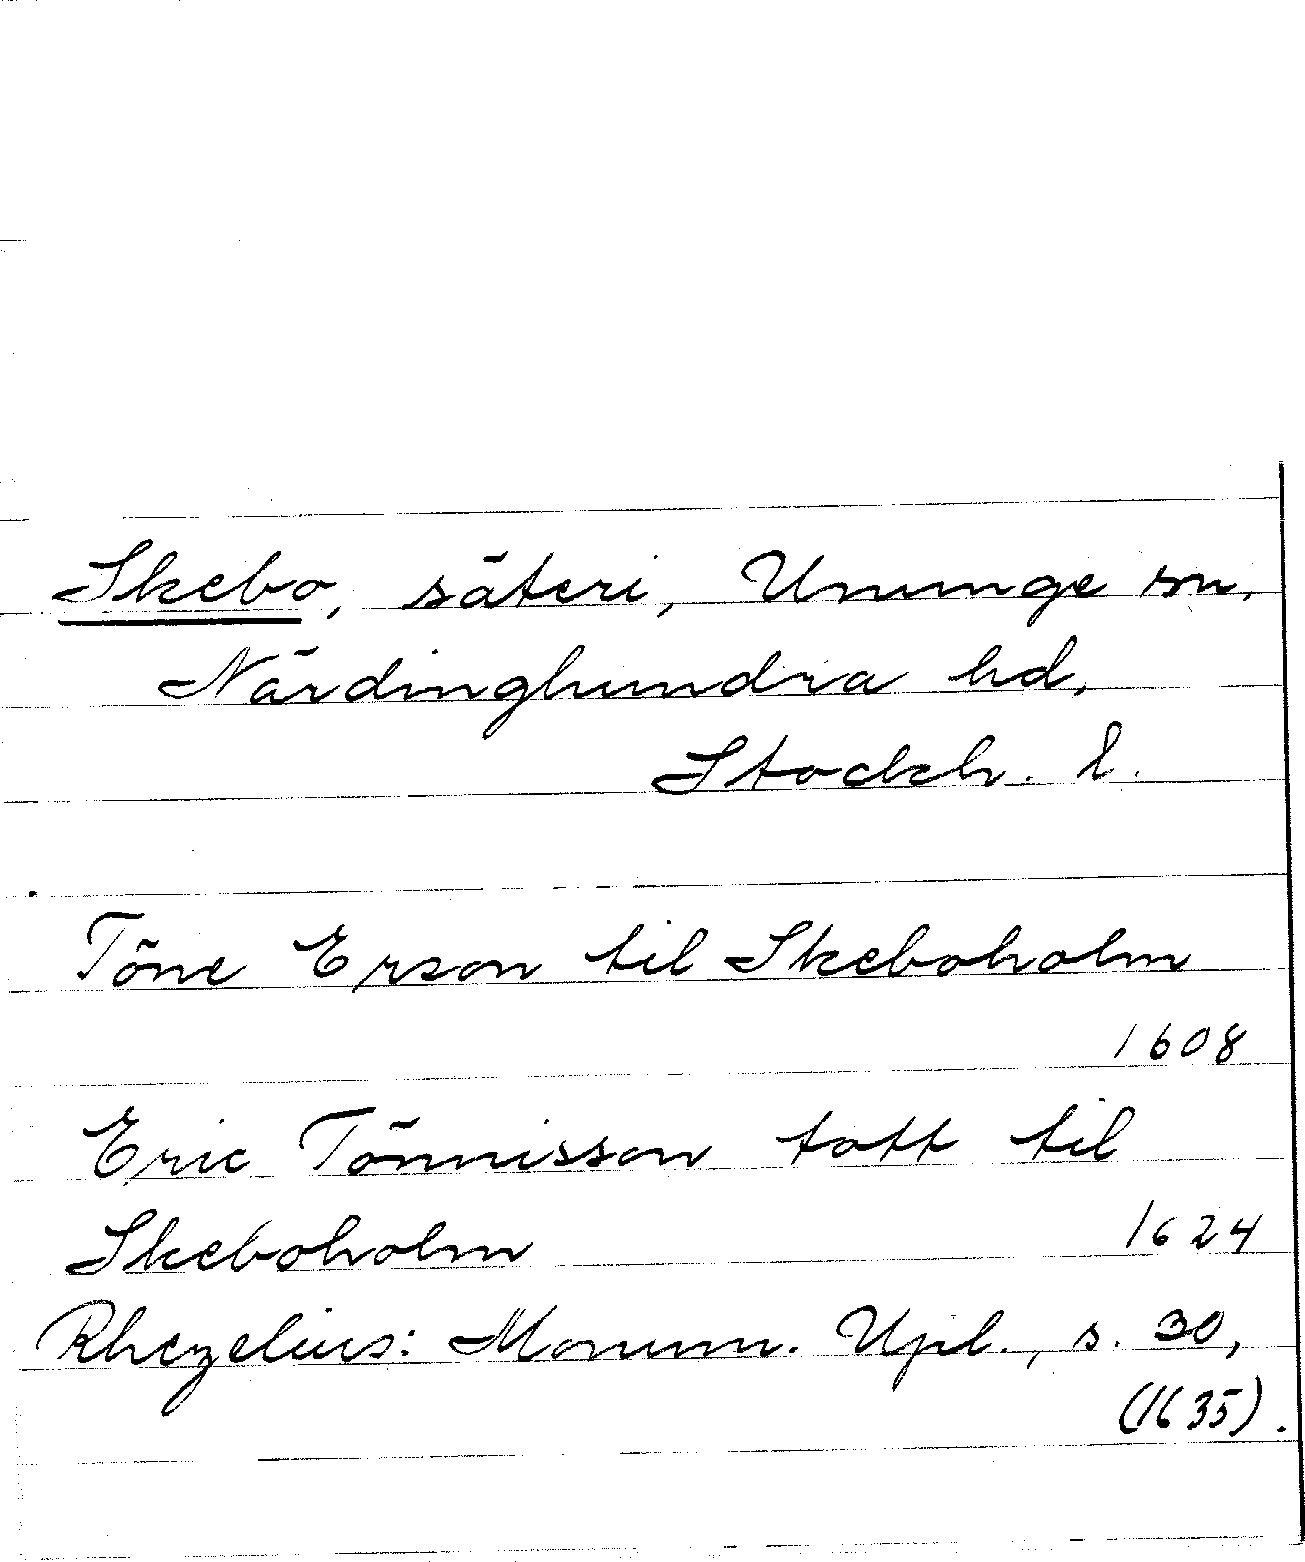 Skebo, säteri, Ununge sn,
Närdinghundra hd,
Stockh. l.
Töne Erson til Skeboholm
1608
Eric Tönnisson tott til
Skeboholm 1624
Rhezelius: Monum. Upl., s. 30,
(1635).